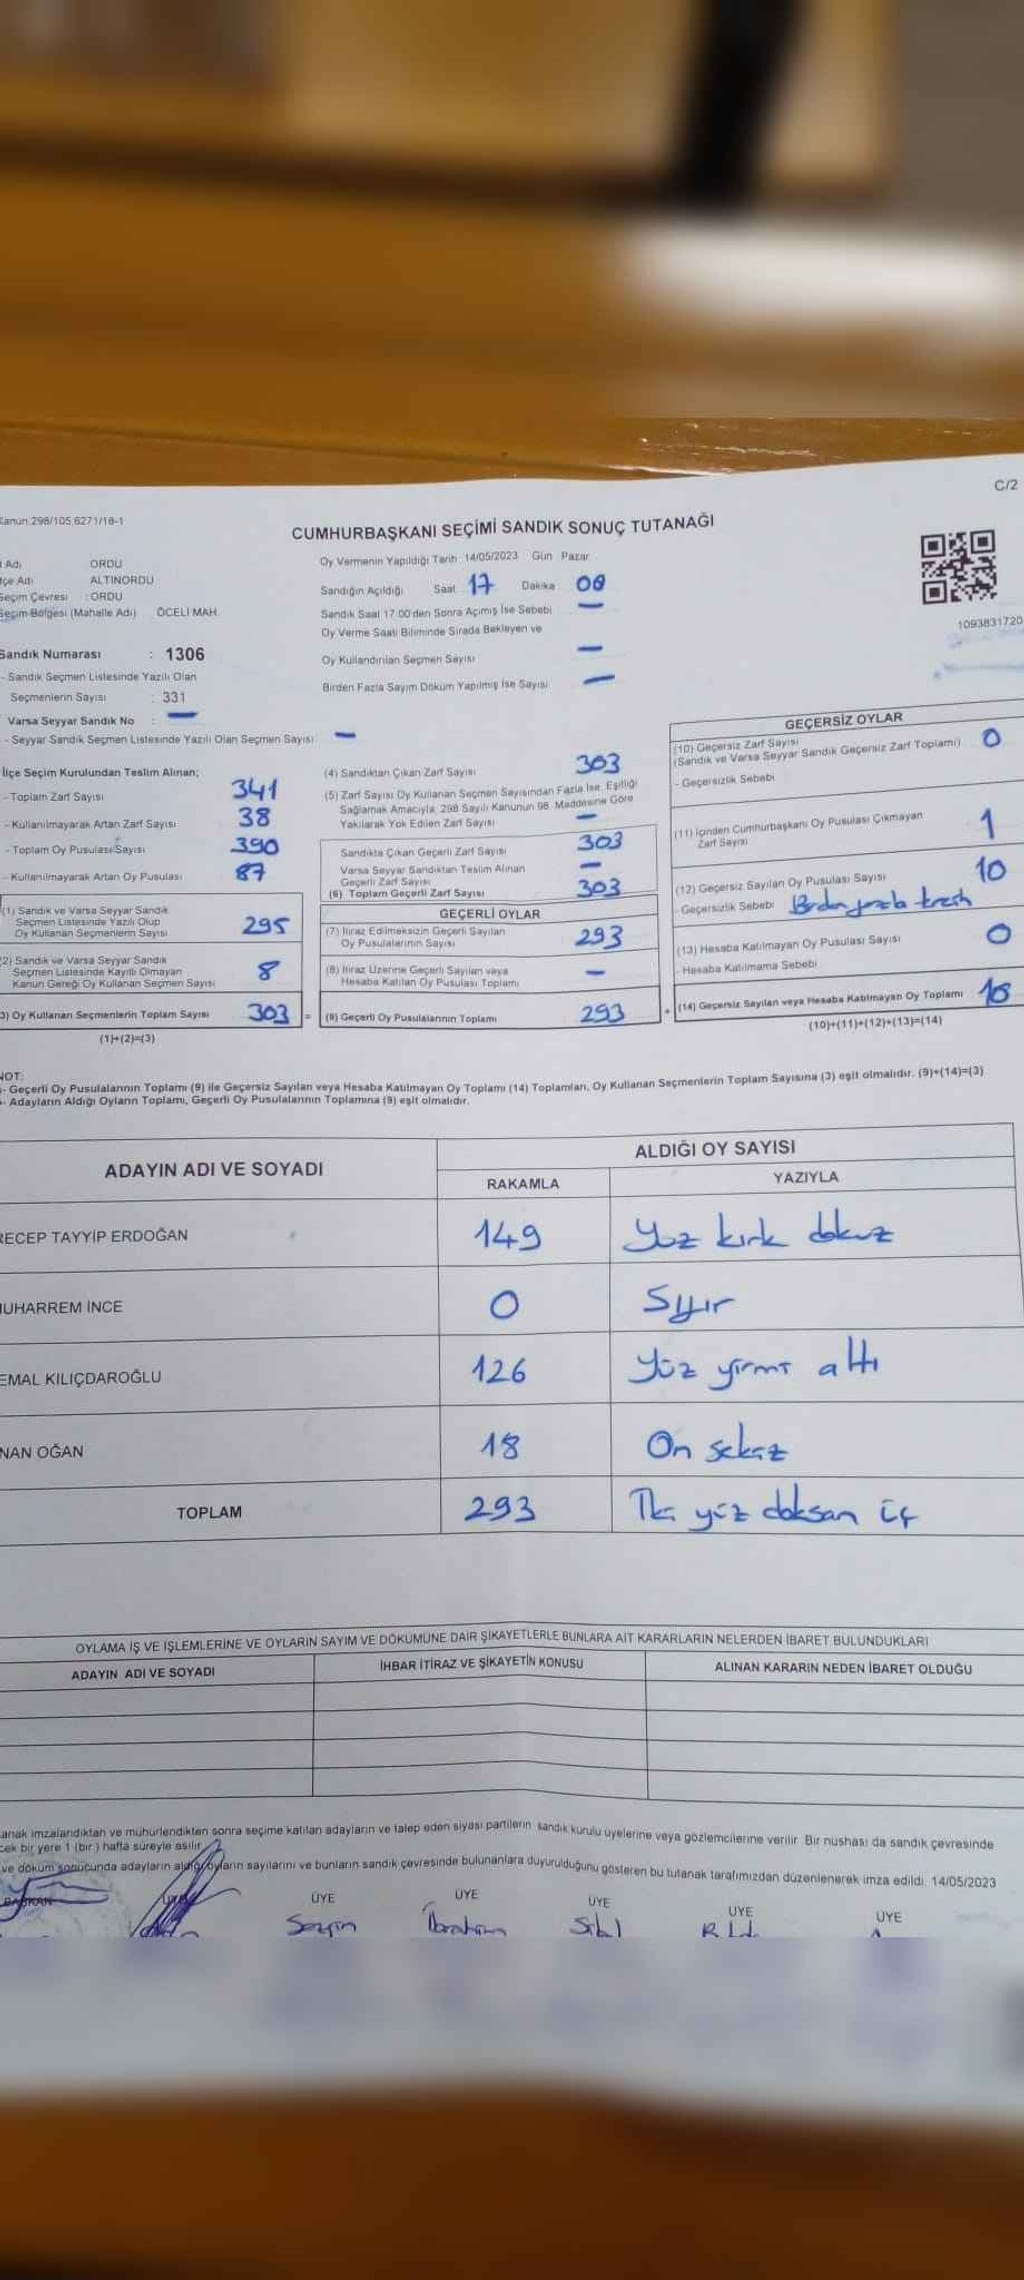 C/2
Kanun:298/105,6271/18-1
CUMHURBAŞKANI SEÇİMİ SANDIK SONUÇ TUTANAĞI
Adı ORDU
çe Adı ALTINORDU
Seçim Çevresi : ORDU
Seçim Bölgesi (Mahalle Adı) ÖCELİ MAH.
Oy Vermenin Yapıldığı Tarih 14/05/2023 Gün Pazar
Sandığın Açıldığı Saat 17 Dakika 00
Sandık Saat 17:00'den Sonra Açımış İse Sebebi —
Oy Verme Saati Bitiminde Sırada Bekleyen ve
Oy Kullandırılan Seçmen Sayısı —
Birden Fazla Sayım Döküm Yapılmış İse Sayısı —
1093831720
Sandık Numarası : 1306
- Sandık Seçmen Listesinde Yazılı Olan
Seçmenlerin Sayısı : 331
Varsa Seyyar Sandık No : —
- Seyyar Sandık Seçmen Listesinde Yazılı Olan Seçmen Sayısı —
İlçe Seçim Kurulundan Teslim Alınan;
- Toplam Zarf Sayısı 341
- Kullanılmayarak Artan Zarf Sayısı 38
- Toplam Oy Pusulası Sayısı 390
- Kullanılmayarak Artan Oy Pusulası 87
(1) Sandık ve Varsa Seyyar Sandık
Seçmen Listesinde Yazılı Olup
Oy Kullanan Seçmenlerin Sayısı 295
(2) Sandık ve Varsa Seyyar Sandık
Seçmen Listesinde Kayıtlı Olmayan
Kanun Gereği Oy Kullanan Seçmen Sayısı 8
3) Oy Kullanan Seçmenlerin Toplam Sayısı 303 =
(1)+(2)=(3)
(4) Sandıktan Çıkan Zarf Sayısı 303
(5) Zarf Sayısı Oy Kullanan Seçmen Sayısından Fazla İse, Eşitliği
Sağlamak Amacıyla, 298 Sayılı Kanunun 98. Maddesine Göre
Yakılarak Yok Edilen Zarf Sayısı —
Sandıkta Çıkan Geçerli Zarf Sayısı 303
Varsa Seyyar Sandıktan Teslim Alınan
Geçerli Zarf Sayısı —
(6) Toplam Geçerli Zarf Sayısı 303
GEÇERLİ OYLAR
(7) İtiraz Edilmeksizin Geçerli Sayılan
Oy Pusulalarının Sayısı 293
(8) İtiraz Üzerine Geçerli Sayılan veya
Hesaba Katılan Oy Pusulası Toplamı —
(9) Geçerli Oy Pusulalarının Toplamı 293 +
GEÇERSİZ OYLAR
(10) Geçersiz Zarf Sayısı
(Sandık ve Varsa Seyyar Sandık Geçersiz Zarf Toplamı) 0
- Geçersizlik Sebebi
(11) İçinden Cumhurbaşkanı Oy Pusulası Çıkmayan
Zarf Sayısı 1
(12) Geçersiz Sayılan Oy Pusulası Sayısı 10
- Geçersizlik Sebebi Birden fazla tercih
(13) Hesaba Katılmayan Oy Pusulası Sayısı 0
- Hesaba Katılmama Sebebi
(14) Geçersiz Sayılan veya Hesaba Katılmayan Oy Toplamı 10
(10)+(11)+(12)+(13)=(14)
NOT:
- Geçerli Oy Pusulalarının Toplamı (9) ile Geçersiz Sayılan veya Hesaba Katılmayan Oy Toplamı (14) Toplamları, Oy Kullanan Seçmenlerin Toplam Sayısına (3) eşit olmalıdır. (9)+(14)=(3)
- Adayların Aldığı Oyların Toplamı, Geçerli Oy Pusulalarının Toplamına (9) eşit olmalıdır.
ADAYIN ADI VE SOYADI ALDIĞI OY SAYISI
RAKAMLA YAZIYLA
RECEP TAYYİP ERDOĞAN 149 Yüz kırk dokuz
MUHARREM İNCE 0 Sıfır
EMAL KILIÇDAROĞLU 126 Yüz yirmi altı
NAN OĞAN 18 On sekiz
TOPLAM 293 İki yüz doksan üç
OYLAMA İŞ VE İŞLEMLERİNE VE OYLARIN SAYIM VE DÖKÜMÜNE DAİR ŞİKAYETLERLE BUNLARA AİT KARARLARIN NELERDEN İBARET BULUNDUKLARI
ADAYIN ADI VE SOYADI İHBAR İTİRAZ VE ŞİKAYETİN KONUSU ALINAN KARARIN NEDEN İBARET OLDUĞU
anak imzalandıktan ve mühürlendikten sonra seçime katılan adayların ve talep eden siyasi partilerin sandık kurulu üyelerine veya gözlemcilerine verilir. Bir nüshası da sandık çevresinde
cek bir yere 1 (bir) hafta süreyle asılır.
ve döküm sonucunda adayların aldığı oyların sayılarını ve bunların sandık çevresinde bulunanlara duyurulduğunu gösteren bu tutanak tarafımızdan düzenlenerek imza edildi. 14/05/2023
BAŞKAN ÜYE ÜYE ÜYE ÜYE ÜYE
İbrahim Sibel